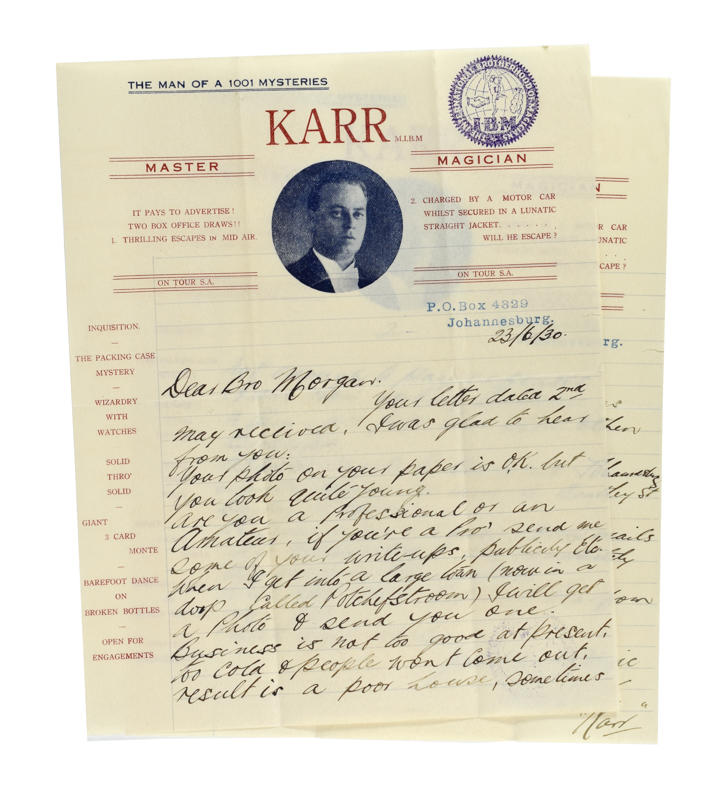 THE MAN OF A 1001 MYSTERIES
KARR M.I.B.M
INTERNATIONAL BROTHERHOOD OF MAGICIANS
I.B.M
MASTER
MAGICIAN
IT PAYS TO ADVERTISE!
TWO BOX OFFICE DRAWS!!
1. THRILLING ESCAPES IN MID AIR.
2. CHARGED BY A MOTOR CAR
WHILST SECURED IN A LUNATIC
STRAIGHT JACKET. . . . . .
WILL HE ESCAPE?
ON TOUR S.A.
ON TOUR S.A.
P.O. Box 4329
Johannesburg.
23/6/30.
INQUISITION.
—
THE PACKING CASE
MYSTERY
—
WIZARDRY
WITH
WATCHES
SOLID
THRO'
SOLID
—
GIANT
3 CARD
MONTE
—
BAREFOOT DANCE
ON
BROKEN BOTTLES
—
OPEN FOR
ENGAGEMENTS
Dear Bro Morgan.
Your letter dated 2nd
May received, I was glad to hear
from you:
Your photo on your paper is O.K. but
you look quite young.
Are you a Professional or an
Amateur, if you're a Pro' send me
some of your write-ups, publicity Etc.
when I get into a large town (now in a
dorp called Potchefstroom) I will get
a Photo & send you one.
Business is not too good at present.
too cold & people wont come out,
result is a poor house, sometimes
N
R CAR
UNATIC
. . .
CAPE?
rg.
St
ails
"Karr"